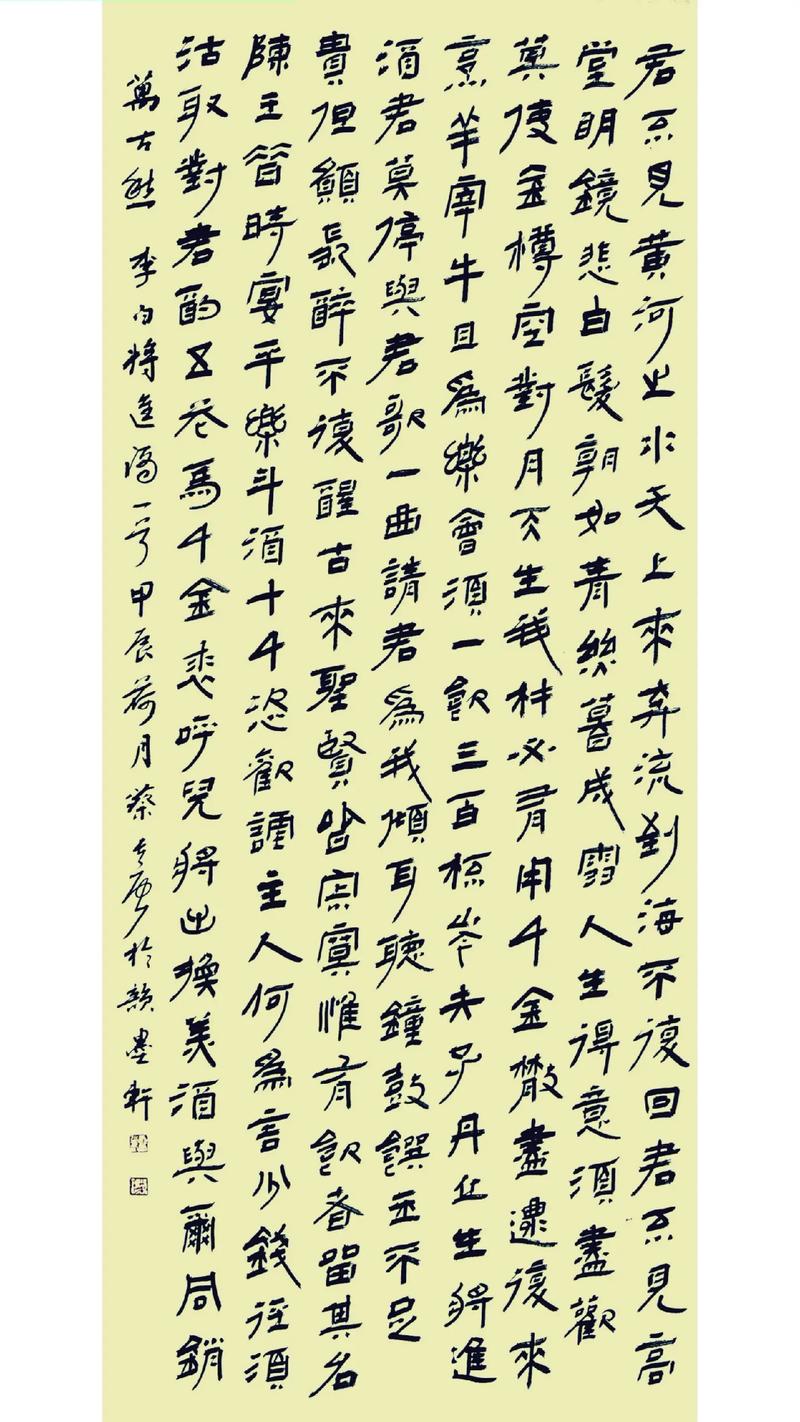 君不見黃河之水天上來奔流到海不復回君不見高
堂明鏡悲白髮朝如青絲暮成雪人生得意須盡歡
莫使金樽空對月天生我材必有用千金散盡還復來
烹羊宰牛且爲樂會須一飲三百杯岑夫子丹丘生將進
酒君莫停與君歌一曲請君爲我傾耳聽鐘鼓饌玉不足
貴但願長醉不復醒古來聖賢皆寂寞惟有飲者留其名
陳王昔時宴平樂斗酒十千恣歡謔主人何爲言少錢徑須
沽取對君酌五花馬千金裘呼兒將出換美酒與爾同銷
萬古愁 李白將進酒一首甲辰荷月蔡於韻墨軒